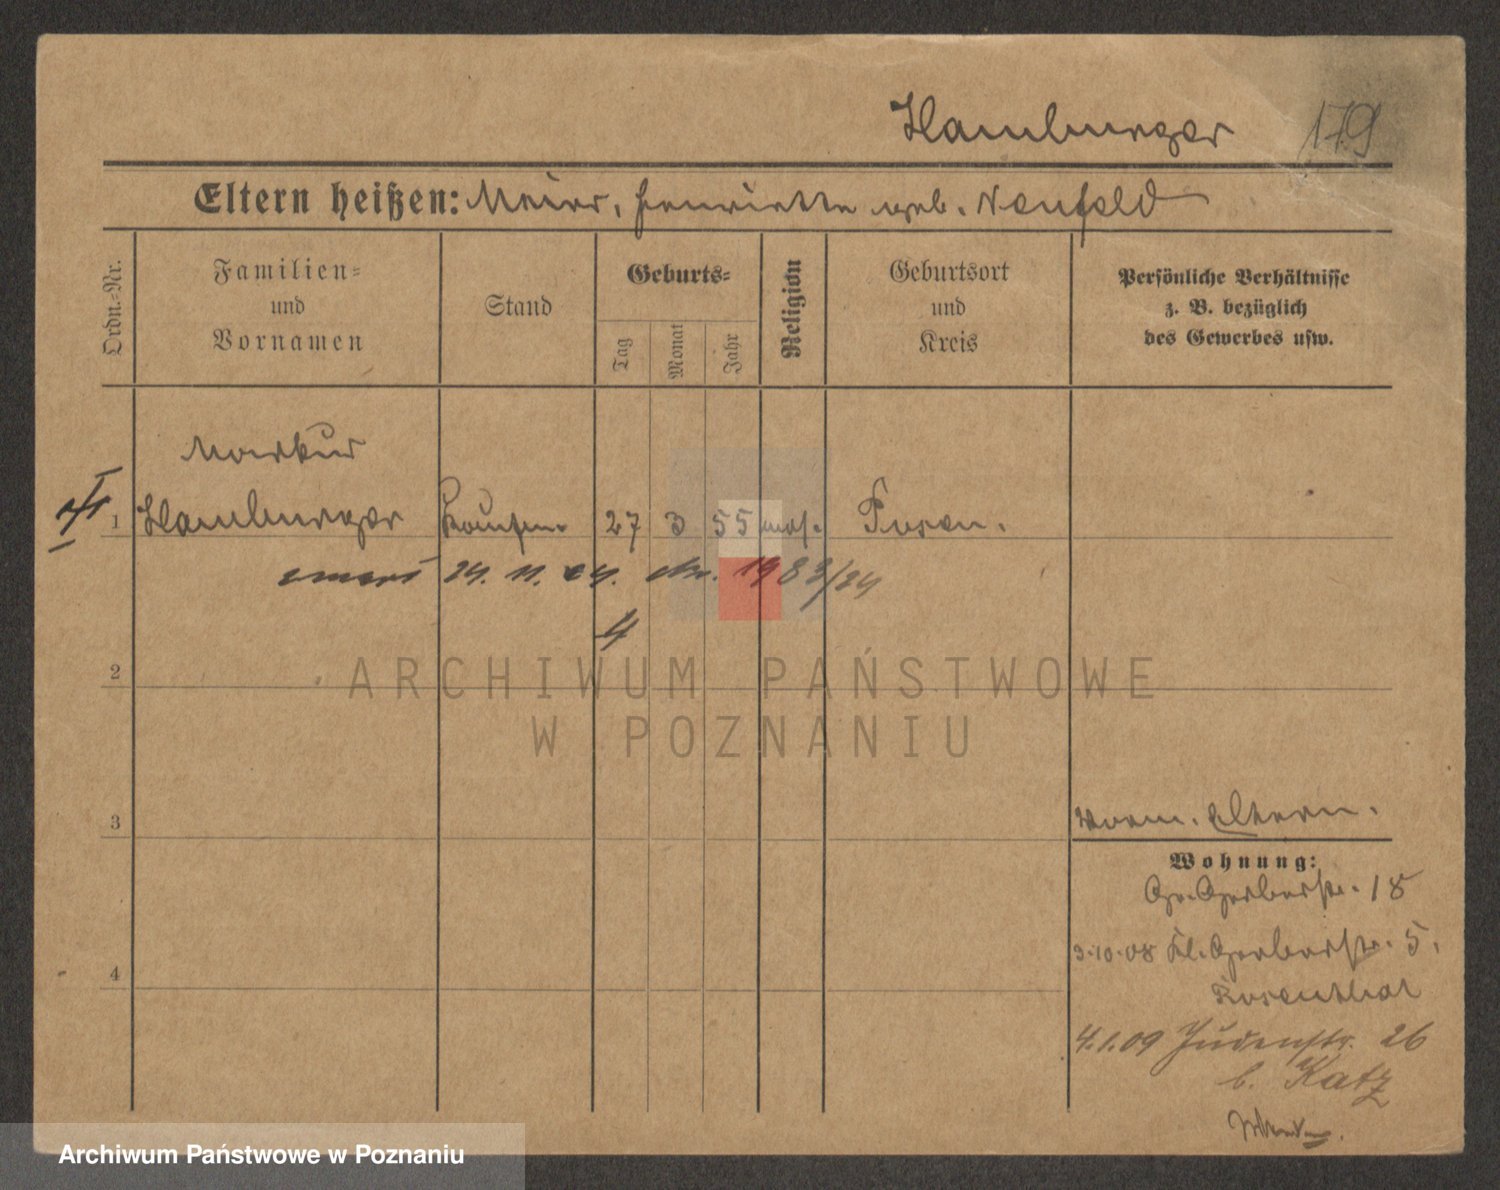 Hamburger 179
Eltern heißen: Meier, Henriette geb. Neufeld
Ordn.-Nr.
Familien-
und
Vornamen
Stand
Geburts-
Tag
Monat
Jahr
Religion
Geburtsort
und
Kreis
Persönliche Verhältnisse
z. B. bezüglich
des Gewerbes usw.
Markus
1 Hamburger Kaufm. 27 3 55 mos. Posen.
zmarł 24. 11. 24. Nr. 1983/24
4
2
ARCHIWUM PAŃSTWOWE
W POZNANIU
3
vorm. Eltern.
Wohnung:
Gr. Gerberstr. 18
3.10.08 Kl. Gerberstr. 5.
4
Rosenthal
4.1.09 Judenstr. 26
b. Katz
Archiwum Państwowe w Poznaniu